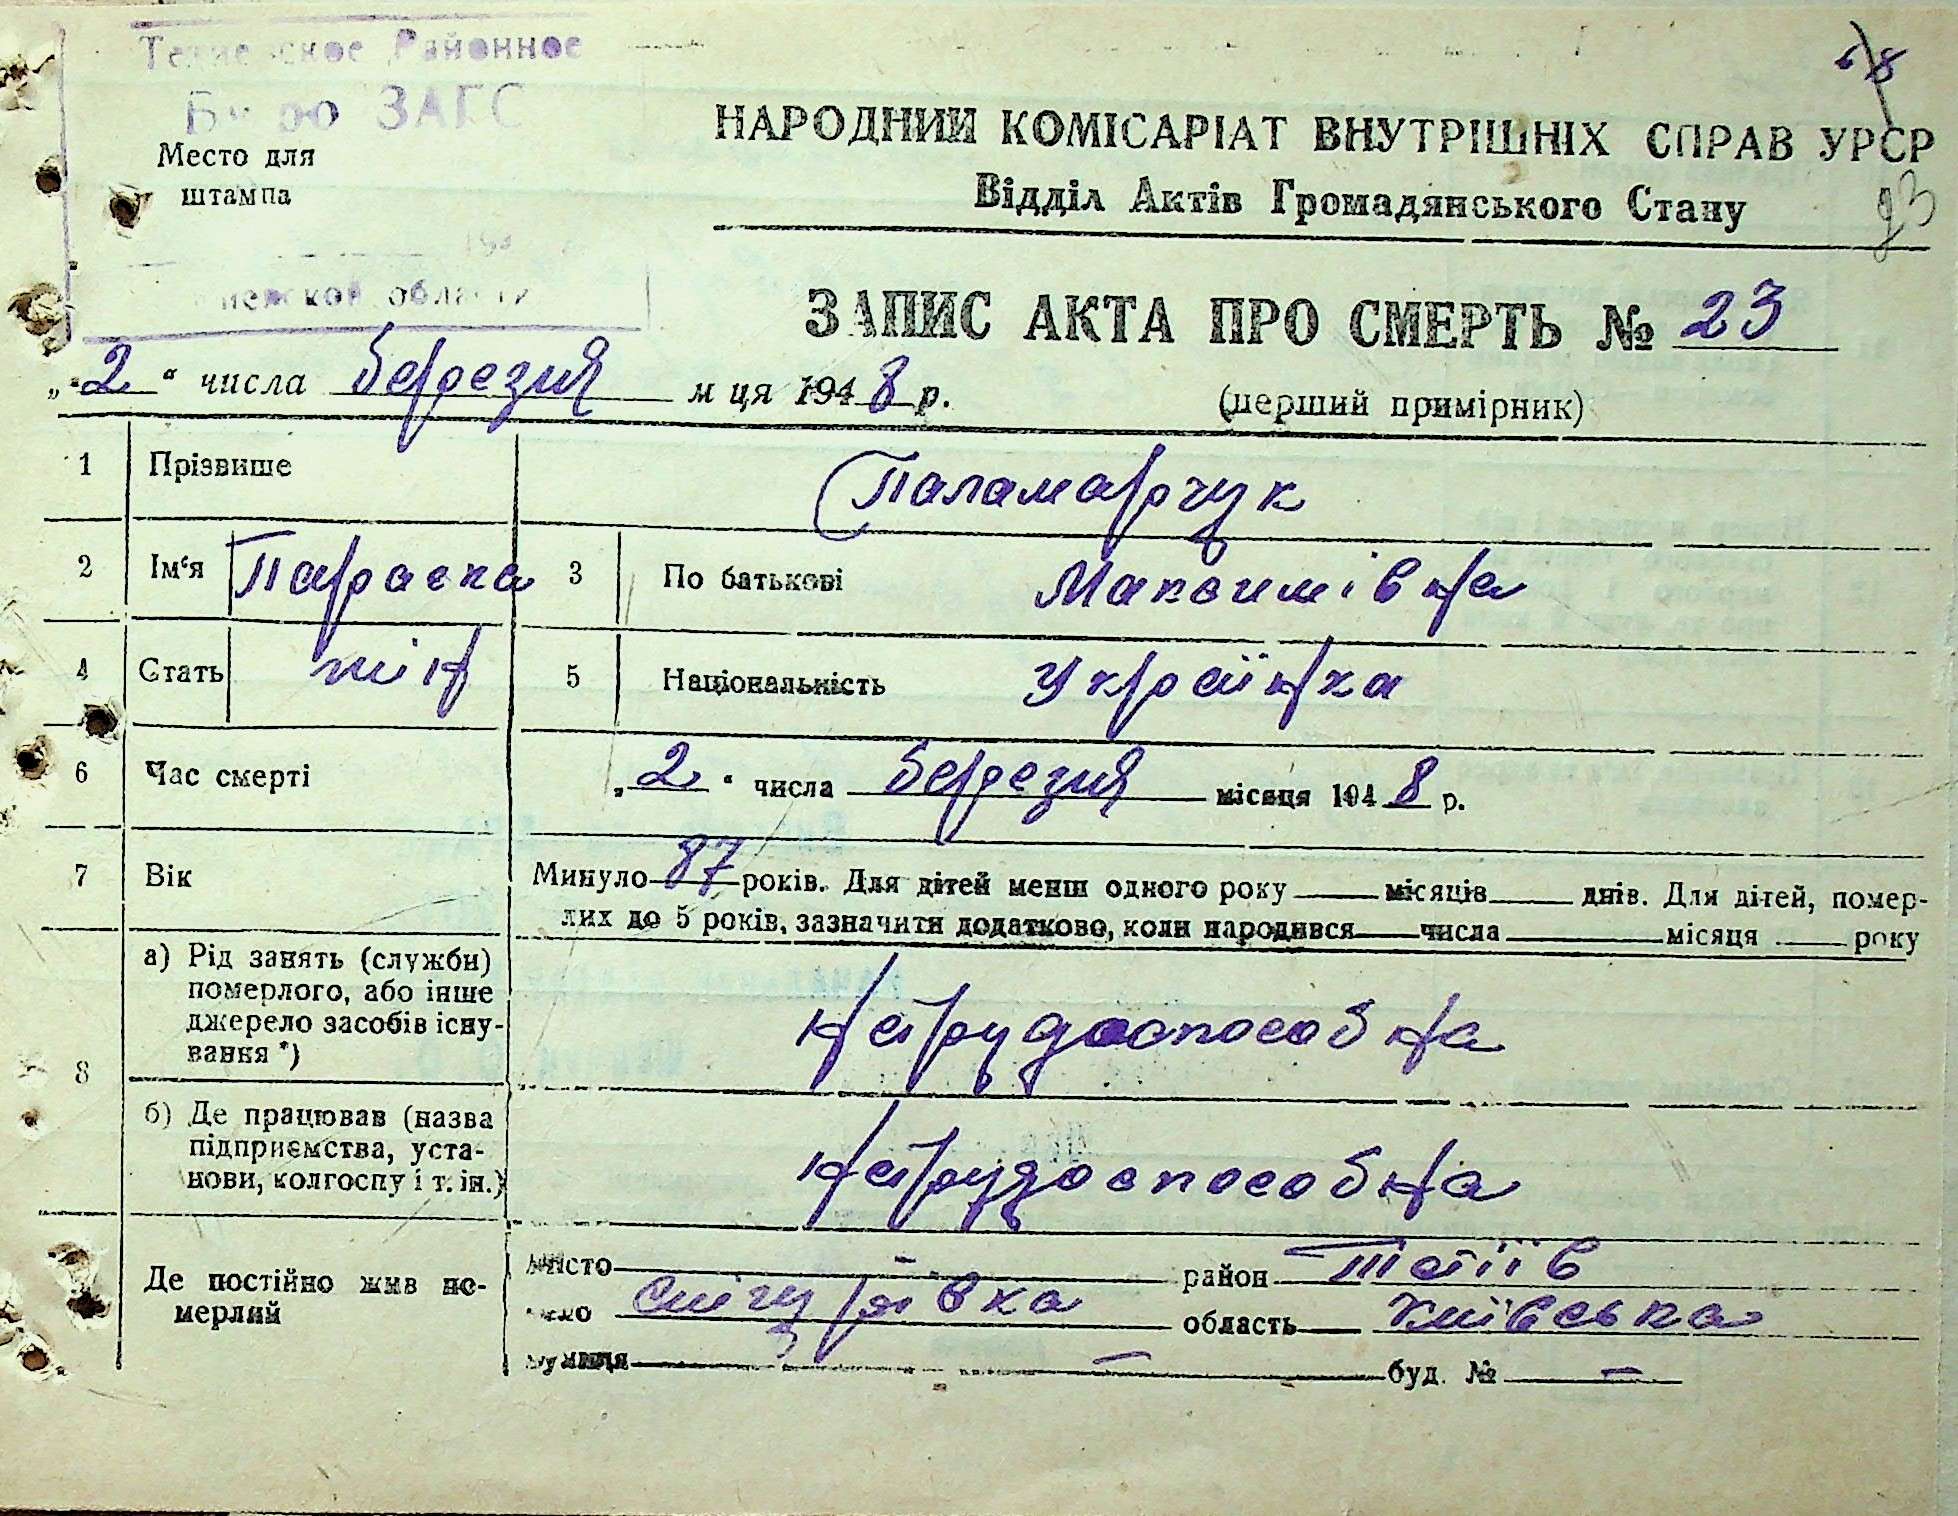 Районное
Бюро ЗАГС
Место для
штампа
области
68
23
НАРОДНИЙ КОМІСАРІАТ ВНУТРІШНІХ СПРАВ УРСР
Відділ Актів Громадянського Стану
ЗАПИС АКТА ПРО СМЕРТЬ № 23
„2“ числа березня м ця 1948 р.
(перший примірник)
1 Прізвище Паламарчук
2 Ім‘я Параска 3 По батькові Максимівна
4 Стать жін 5 Національність Українка
6 Час смерті „2“ числа березня місяця 1948 р.
7 Вік Минуло 87 років. Для дітей менш одного року — місяців — днів. Для дітей, помер-
лих до 5 років, зазначити додатково, коли народився — числа — місяця — року
8 а) Рід занять (служби)
померлого, або інше
джерело засобів існу-
вання *)
нетрудоспособна
б) Де працював (назва
підприємства, уста-
нови, колгоспу і т. ін.)
нетрудоспособна
Де постійно жив по-
мерлий
місто — район Тетіїв
село Снігурівка область Київська
вулиця — буд. № —